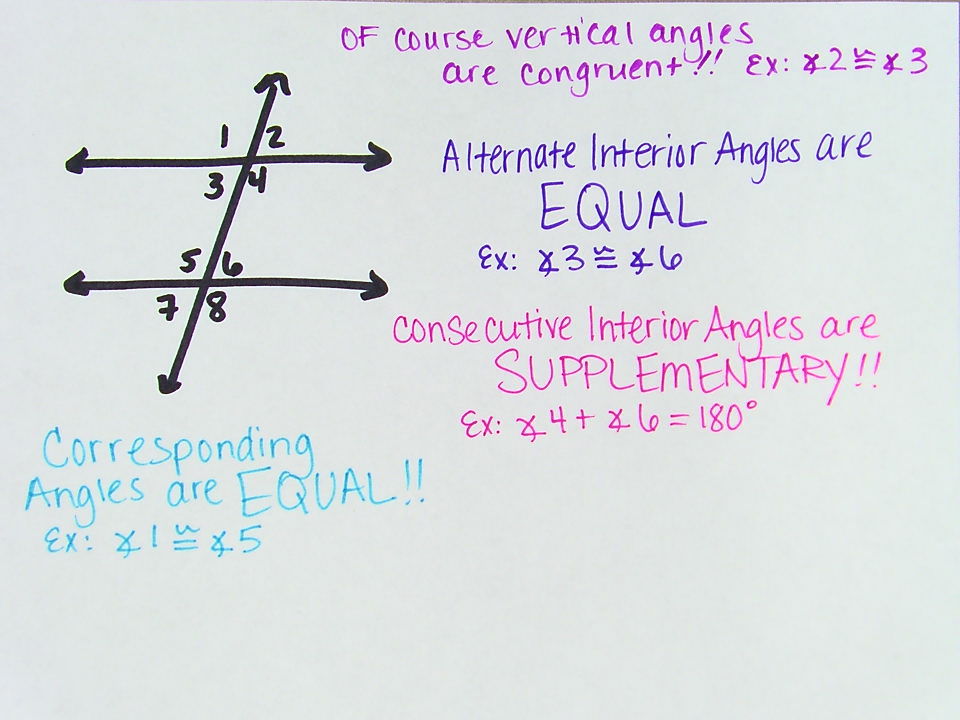 OF course vertical angles
are congruent!!! Ex: ∡2 ≅ ∡3
1 2
3 4
5 6
7 8
Alternate Interior Angles are
EQUAL
Ex: ∡3 ≅ ∡6
Consecutive Interior Angles are
SUPPLEMENTARY!!
Ex: ∡4 + ∡6 = 180°
Corresponding
Angles are EQUAL!!
Ex: ∡1 ≅ ∡5